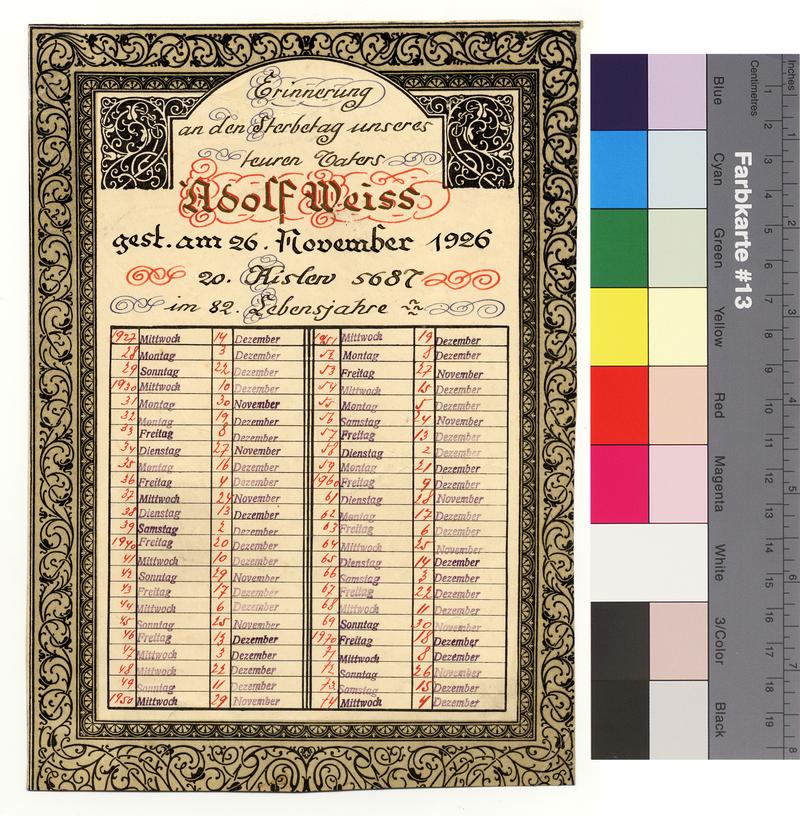 Erinnerung
an den Sterbetag unseres
teuren Vaters
Adolf Weiss
gest. am 26. November 1926
20. Kislew 5687
im 82. Lebensjahre
1927 Mittwoch 14 Dezember
28 Montag 3 Dezember
29 Sonntag 22 Dezember
1930 Mittwoch 10 Dezember
31 Montag 30 November
32 Montag 19 Dezember
33 Freitag 8 Dezember
34 Dienstag 27 November
35 Montag 16 Dezember
36 Freitag 4 Dezember
37 Mittwoch 24 November
38 Dienstag 13 Dezember
39 Samstag 2 Dezember
1940 Freitag 20 Dezember
41 Mittwoch 10 Dezember
42 Sonntag 29 November
43 Freitag 17 Dezember
44 Mittwoch 6 Dezember
45 Sonntag 25 November
46 Freitag 13 Dezember
47 Mittwoch 3 Dezember
48 Mittwoch 22 Dezember
49 Sonntag 11 Dezember
1950 Mittwoch 29 November
1951 Mittwoch 19 Dezember
52 Montag 8 Dezember
53 Freitag 27 November
54 Mittwoch 15 Dezember
55 Montag 5 Dezember
56 Samstag 24 November
57 Freitag 13 Dezember
58 Dienstag 2 Dezember
59 Montag 21 Dezember
1960 Freitag 9 Dezember
61 Dienstag 28 November
62 Montag 17 Dezember
63 Freitag 6 Dezember
64 Mittwoch 25 November
65 Dienstag 14 Dezember
66 Samstag 3 Dezember
67 Freitag 22 Dezember
68 Mittwoch 11 Dezember
69 Sonntag 30 November
1970 Freitag 18 Dezember
71 Mittwoch 8 Dezember
72 Sonntag 26 November
73 Samstag 15 Dezember
74 Mittwoch 4 Dezember
Farbkarte #13
Blue
Cyan
Green
Yellow
Red
Magenta
White
3/Color
Black
Centimetres
1 2 3 4 5 6 7 8 9 10 11 12 13 14 15 16 17 18 19
Inches
1 2 3 4 5 6 7 8